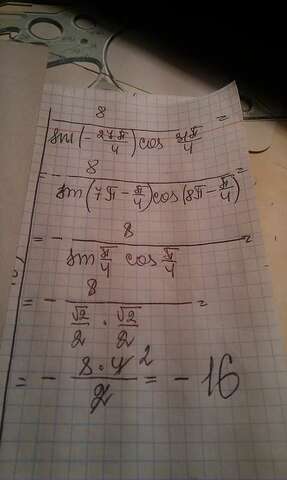 8 / (sin(-27π/4) cos 31π/4) =
= - 8 / (sin(7π - π/4) cos(8π - π/4)) =
= - 8 / (sin π/4 cos π/4) =
= - 8 / (√2/2 · √2/2) =
= - 8·4 2 / 2 = - 16